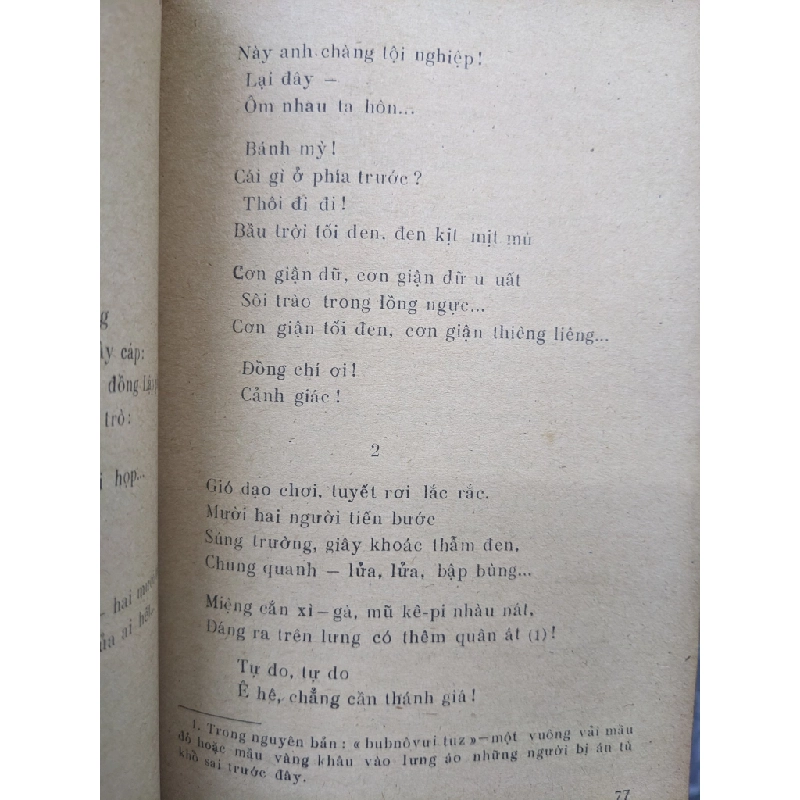 g
ây cáp:
đồng-Lập
trò:
i họp...
- hai
ủa ai hết.
Này anh chàng tội nghiệp!
Lại đây —
Ôm nhau ta hôn...
Bánh mỳ!
Cái gì ở phía trước?
Thôi đì đi!
Bầu trời tối đen, đen kịt mịt mù
Cơn giận dữ, cơn giận dữ u uất
Sôi trào trong lồng ngực...
Cơn giận tối đen, cơn giận thiêng liêng...
Đồng chí ơi!
Cảnh giác!
2
Gió dạo chơi, tuyết rơi lắc rắc.
Mười hai người tiến bước
Súng trường, giây khoác thẫm đen,
Chung quanh — lửa, lửa, bập bùng...
Miệng cắn xì-gà, mũ kê-pi nhàu nát,
Đáng ra trên lưng có thêm quân át (1)!
Tự do, tự do
Ê hê, chẳng cần thánh giá!
1. Trong nguyên bản: «bubnôvưi tuz»—một vuông vải mầu
đỏ hoặc mầu vàng khâu vào lưng áo những người bị án tù
khổ sai trước đây.
77